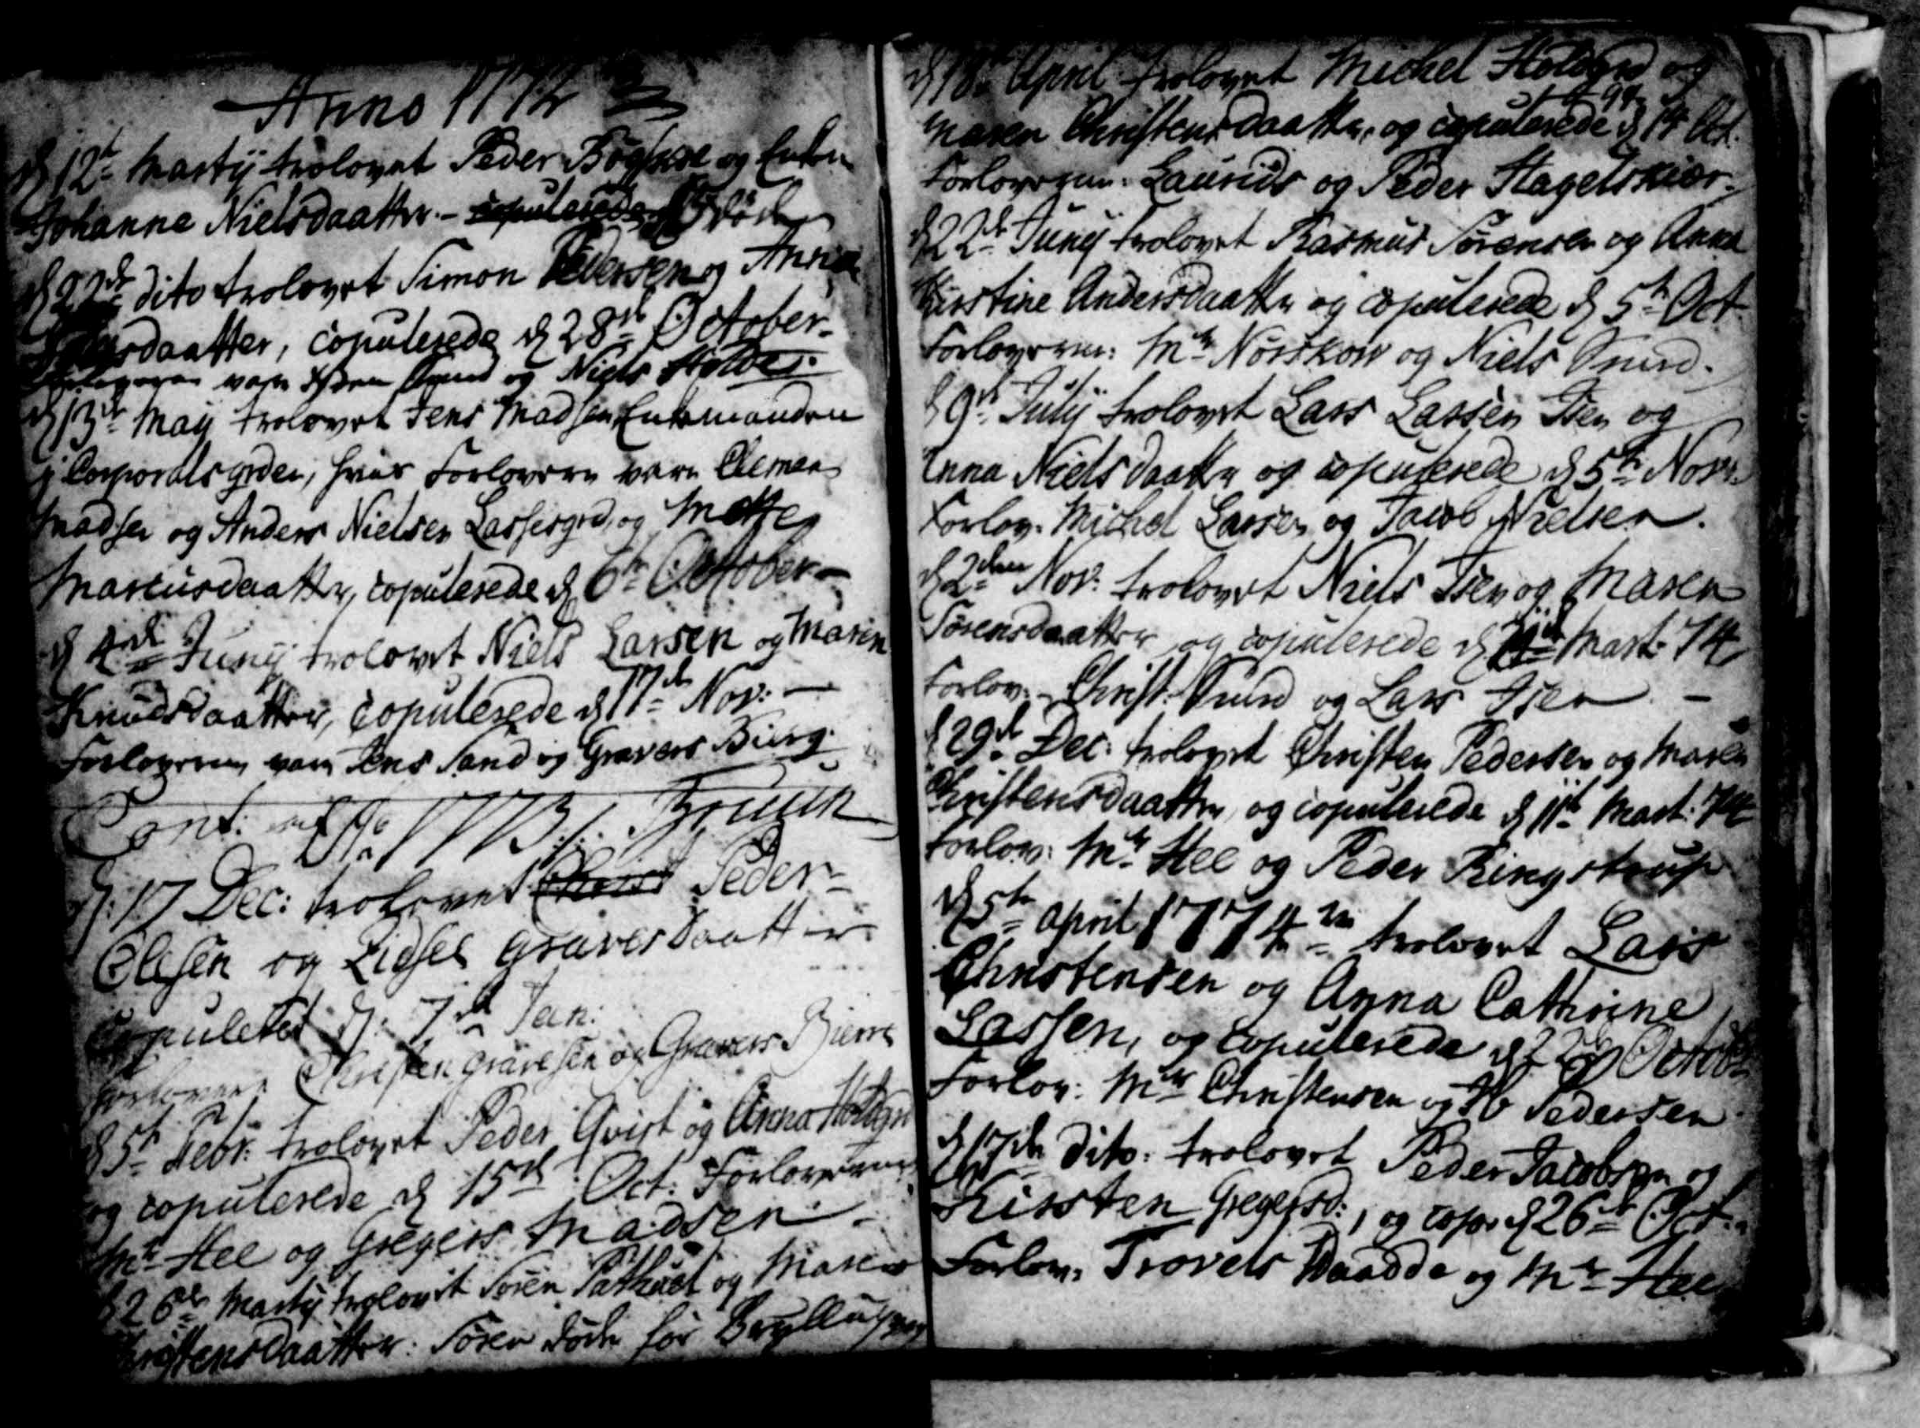 Anno 1772
d 12te Martij trolovet Peder og Enken
Johanne Nielsdaatter. - copulerede døde
d 22de dito trolovet Simon Pedersen og Anna
daatter, copulerede d 28de October.
Forloverne vare Sund og Niels Holder.
d 13de Maij trolovet Jens Madsen Enkemanden
i Corporalsgrden, hvis Forlovere vare Clemen
Madsen og Anders Nielsen Lassesgrd, og Mette
Marcusdaatter, copulerede d 6te October -
d 4de Junij trolovet Niels Larsen og Maren
Knudsdaatter, copulerede d 17de Nov: -
Forloverne vare Jens Sand og Gravers Bierg.
Cont: 1773
d: 17 Dec: trolovet Christ Peder
Olesen og Zidsel Graversdaatter
copuleret d: 7de Jan:
Forlovere Christen Gravesen og Gravers Bierre
d 5te Febr: trolovet Peder Qvist og Anna
og copulerede d 15de Oct: Forloverne
Mr Hee og Gregers Madsen -
d 26de Martij trolovet Søren og Maren
Christensdaatter: Søren døde før Bryllupet
d 18de April trolovet Michel Holdgrd og
Maren Christensdaatter, og copulerede d 14 Oct.
Forloverne: Laurids og Peder Hagelskier.
d 22de Junij trolovet Rasmus Sørensen og Anna
Kirstine Andersdaatter og copulerede d 5te Oct
Forloverne: Mr Nørskow og Niels Sund.
d 9de Julij trolovet Lars Lassen Isen og
Anna Nielsdaatter og copulerede d 5te Nov:
Forlov: Michel Larsen og Jacob Nielsen.
d 2den Nov: trolovet Niels Isen og Maren
Sørensdaatter og copulerede d Mart: 74
Forlov: - Christ: Sund og Lars Isen -
d 29de Dec: trolovet Christen Pedersen og Maren
Christensdaatter, og copulerede d 11te Mart: 74
Forlov: Mr Hee og Peder Ringstrup
d 5te April 1774 trolovet Lars
Christensen og Anna Cathrine
Lassen, og copulerede d 22de October
Forlov: Mr Christensen og Ib Pedersen
d 17de dito: trolovet Peder Jacobsen og
Kirsten Gregersd:, og cop: d 26de Oct.
Forlov: Trovels Daadde og Mr Hee